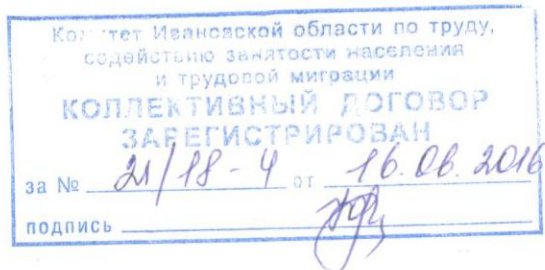 Комитет Ивановской области по труду,
содействию занятости населения
и трудовой миграции
КОЛЛЕКТИВНЫЙ ДОГОВОР
ЗАРЕГИСТРИРОВАН
за № 21/18-4 от 16.06.2016
подпись